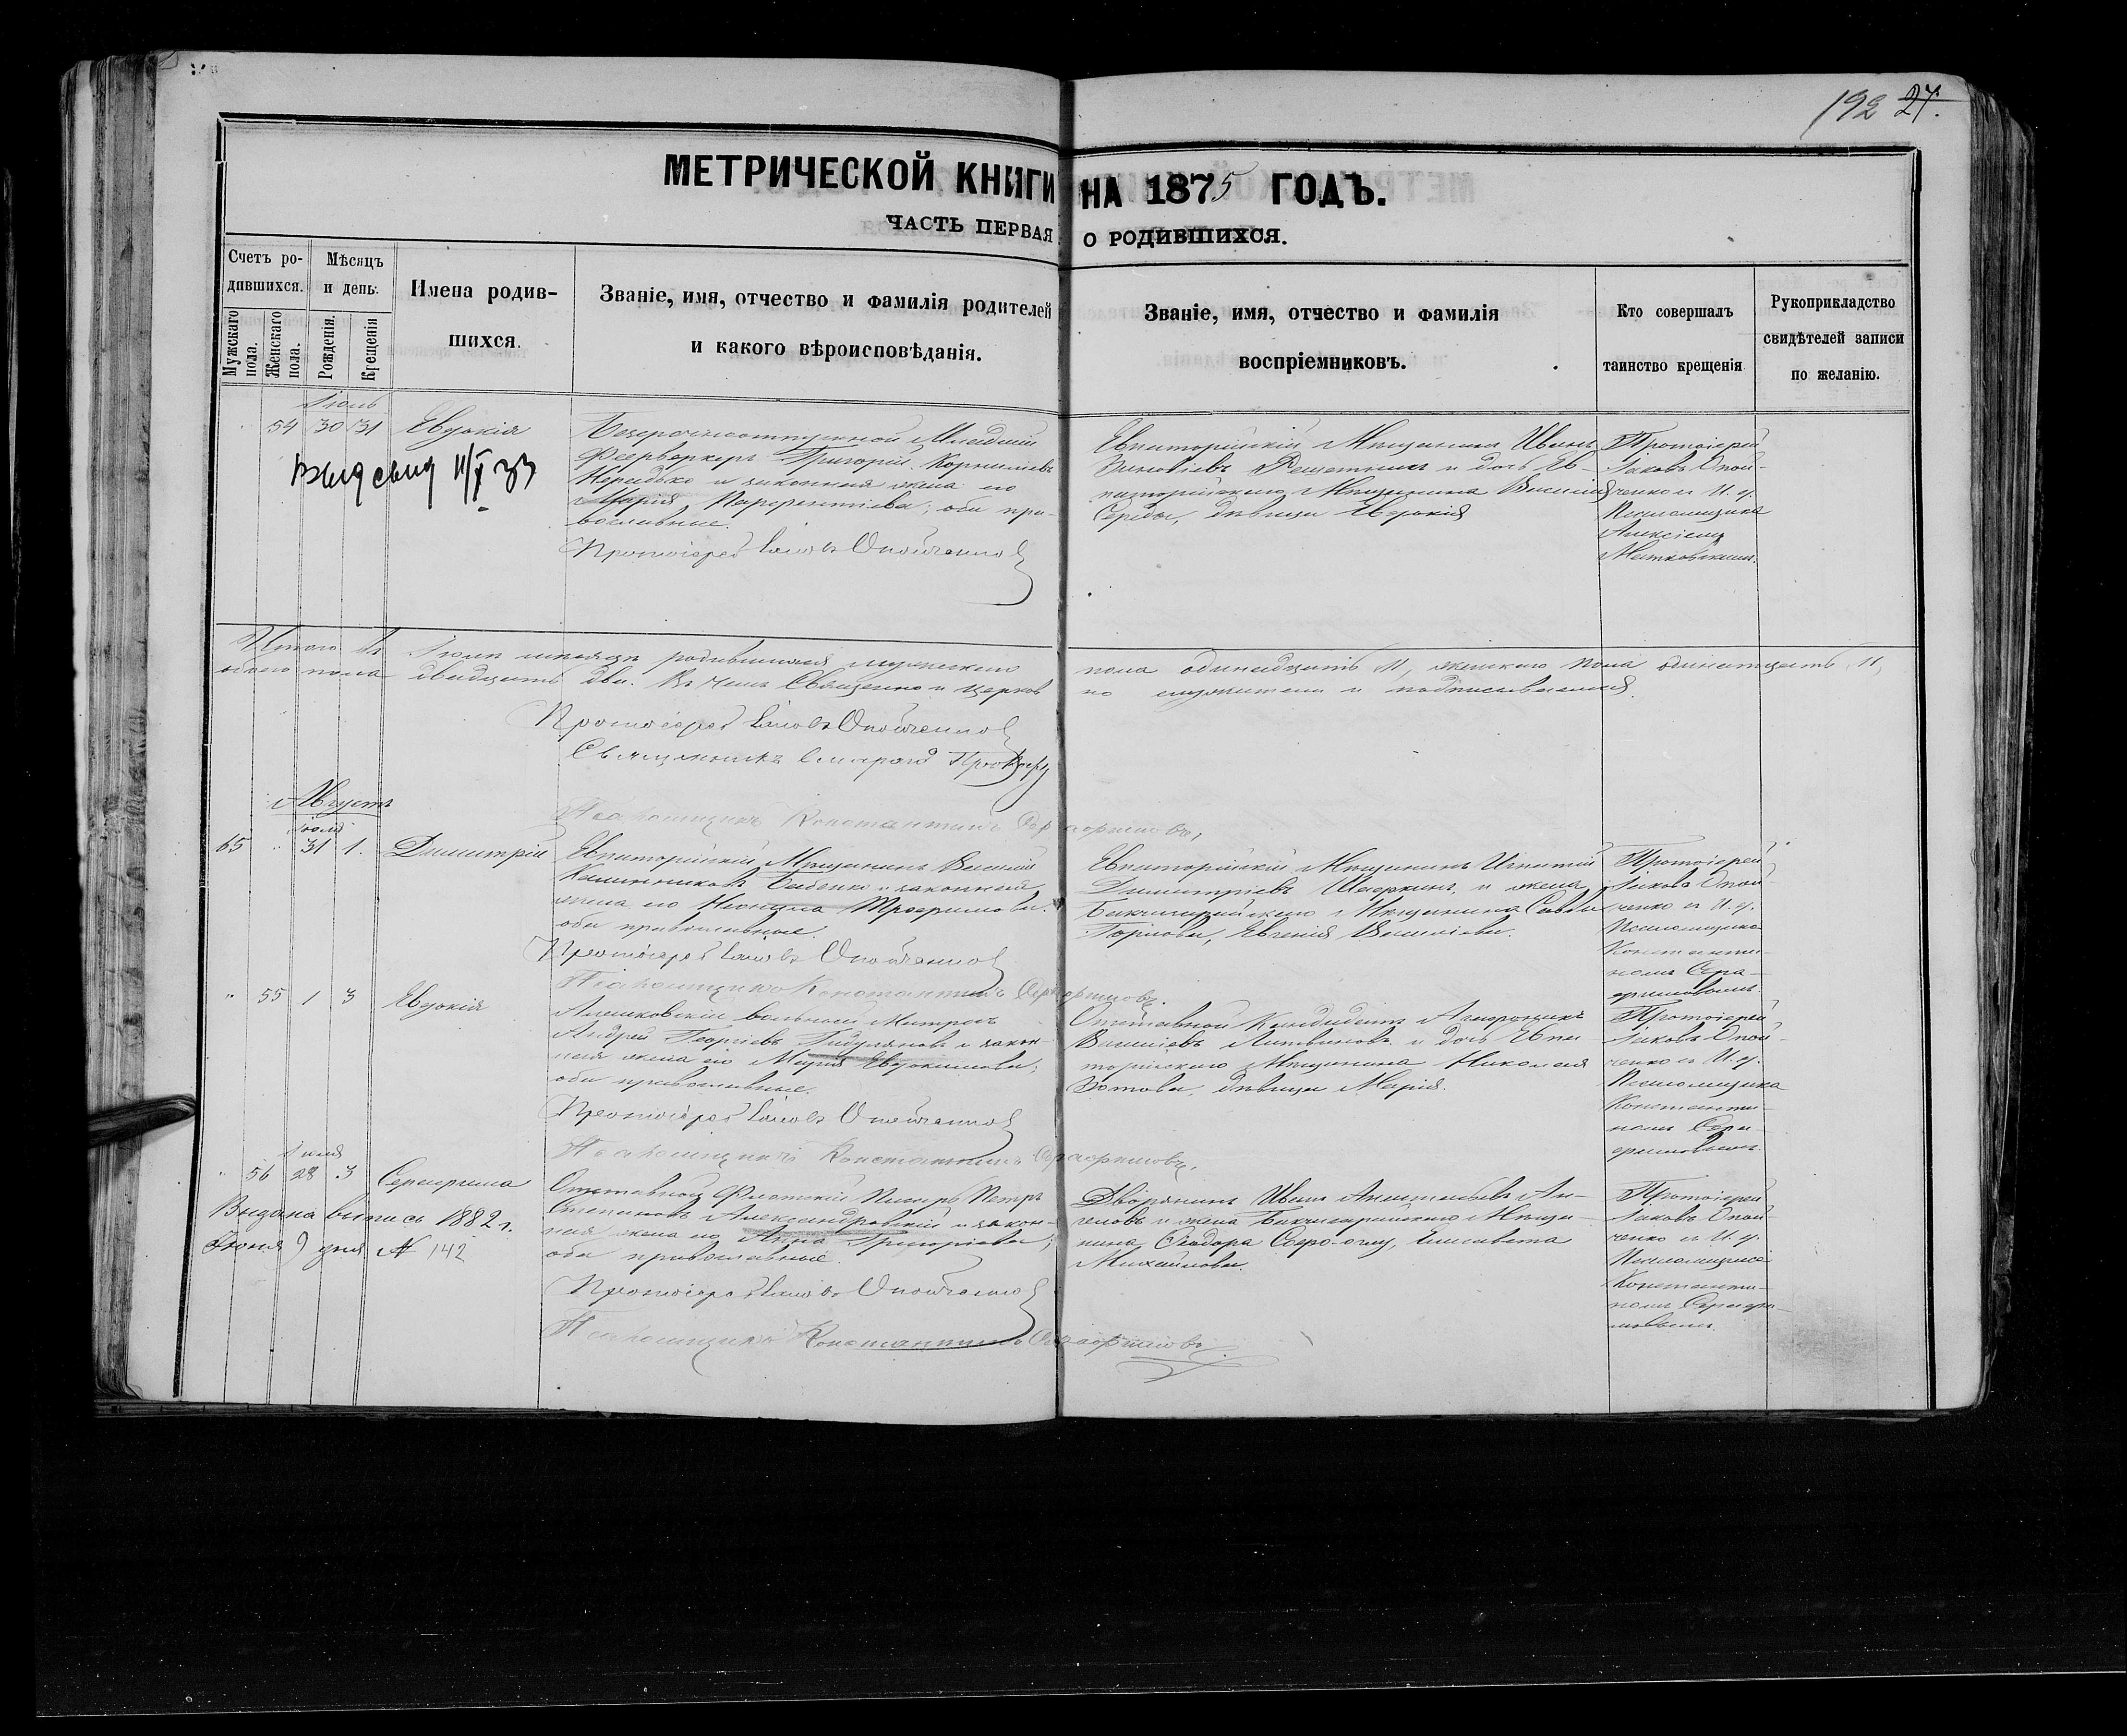 192 27.
МЕТРИЧЕСКОЙ КНИГИ НА 1875 ГОДЪ.
ЧАСТЬ ПЕРВАЯ О РОДИВШИХСЯ.
Счетъ родившихся.
Мужскаго пола.
Женскаго пола.
Мѣсяцъ и день.
Рожденія.
Крещенія
Имена родившихся.
Званіе, имя, отчество и фамилія родителей
и какого вѣроисповѣданія.
Званіе, имя, отчество и фамилія
воспріемниковъ.
Кто совершалъ
таинство крещенія
Рукоприкладство
свидѣтелей записи
по желанію.
Іюль
54 30 31 Евдокія
Безсрочноотпускной Младшій
Фейрверкеръ Григорій Корниліевъ
и законная жена его
Марія Парфентіева; оба пра-
вославные.
Протоіерей Іаковъ Опойченко
Евпаторійскій Мѣщанинъ Иванъ
Зиновіевъ Решетникъ и дочь Ев-
паторійскаго Мѣщанина Василія
Середы, дѣвица Евдокія
Протоіерей
Іаковъ Опой-
ченко съ И. д.
Псаломщика
Алексіемъ
Матковскимъ.
Итого въ Іюлѣ мѣсяцѣ родившихся мужескаго пола одинадцать 11, женскаго пола одинадцать 11,
обоего пола двадцать два. Въ чемъ Священно и церков но служители и подписываемся.
Протоіерей Іаковъ Опойченко
Священникъ
Псаломщикъ Константинъ Серафимовъ,
Августъ
Іюля
65 31 1. Димитрій
Евпаторійскій Мѣщанинъ Василій
Калинниковъ Бабенко и законная
жена его Неонила Трофимова.
оба православные.
Протоіерей Іаковъ Опойченко
Псаломщикъ Константинъ Серафимовъ.
Евпаторійскій Мѣщанинъ Игнатій
Димитріевъ и жена
Бахчисарайскаго Мѣщанина Саввы
Горлова, Евгенія Василіева.
Протоіерей
Іаковъ Опой-
ченко съ И. д.
Псаломщика
Константи-
номъ Сера-
фимовымъ.
55 1 3 Евдокія
Алешковскій вольный Матросъ
Андрей Георгіевъ и закон-
ная жена его Марія Евдокимова;
оба православные.
Протоіерей Іаковъ Опойченко
Псаломщикъ Константинъ Серафимовъ.
Отставной Кандидатъ
Василіевъ Литвиновъ и дочь Евпа
торійскаго Мѣщанина Николая
Зотова, дѣвица Марія.
Протоіерей
Іаковъ Опой-
ченко съ И. д.
Псаломщика
Константи-
номъ Сера-
фимовымъ.
Іюля
56 28 3 Серафима
Выдана выпись 1882 г.
Іюня 9 дня № 142
Отставной Флотскій Писарь Петръ
Степановъ Александровскій и закон-
ная жена его Анна Григоріева;
оба православные.
Протоіерей Іаковъ Опойченко
Псаломщикъ Константинъ Серафимовъ.
Дворянинъ Иванъ
и жена Бахчисарайскаго Мѣща-
нина Ѳеодора Елисавета
Михайлова.
Протоіерей
Іаковъ Опой-
ченко съ И. д.
Псаломщика
Константи-
номъ Серафи-
мовымъ.